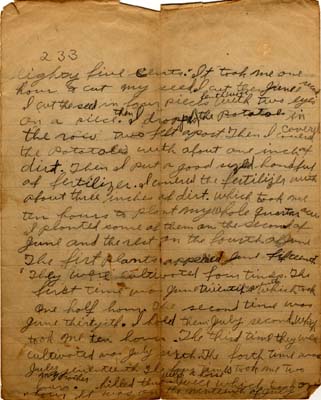 233
eighty five cents. It took me one
hour to cut my seed. I cut them June
I cut the seed in four pieces with two eyes
on a piece. then I droped the potatoe in
the row two feet apart. Then I covered
the potatoes with about one inch of
dirt. Then I put a good sized handful
of fertilizer. I covered the fertilizer with
about three inches of dirt. which took me
ten hours to plant my whole quarter
I planted some of them on the second of
June and the rest on the fourth of June
The first plants appeared June fifteenth
They were cultivated four times. The
first time was June twentieth which took
one half hour. The second time was
June thirtyth. I hoed them July second. Which
took me ten hours. The third time they were
cultivated was July The forth time was
July took me two
hours. killed them